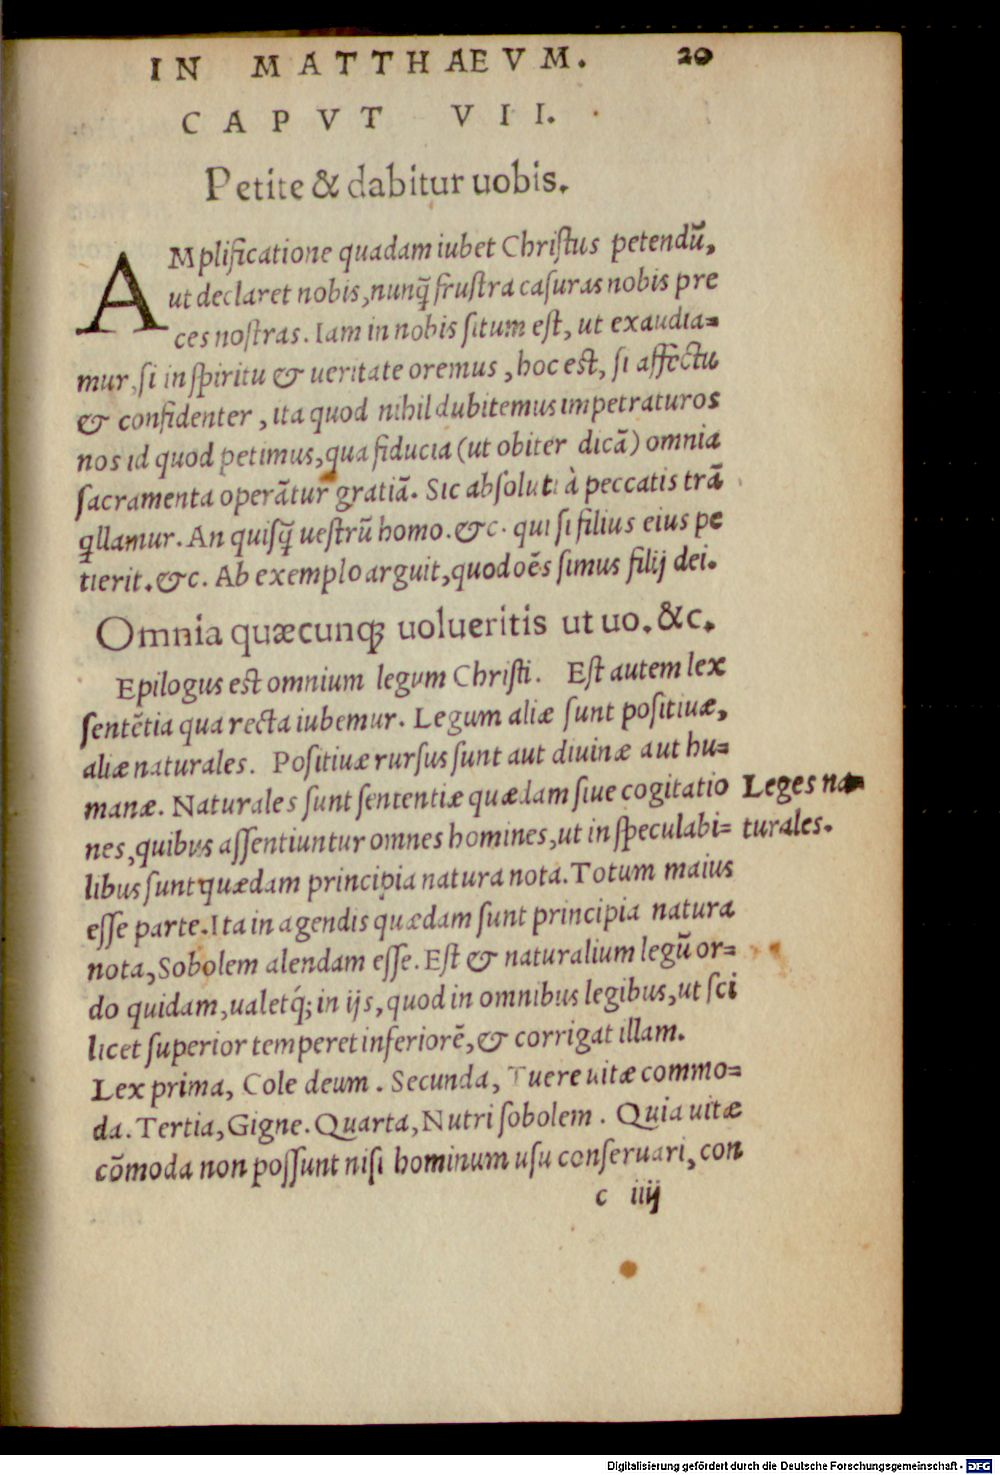 IN MATTHAEVM. 20
CAPVT VII.
Petite & dabitur uobis.
AMplificatione quadam iubet Christus petendũ,
ut declaret nobis, nunq̃ frustra casuras nobis pre
ces nostras. Iam in nobis situm est, ut exaudia=
mur, si in spiritu & ueritate oremus, hoc est, si affectu
& confidenter, ita quod nihil dubitemus impetraturos
nos id quod petimus, qua fiducia (ut obiter dicã) omnia
sacramenta operãtur gratiã. Sic absoluti à peccatis trã
q̃llamur. An quisq̃ uestrũ homo. &c. qui si filius eius pe
tierit. &c. Ab exemplo arguit, quod oẽs simus filij dei.
Omnia quæcunq; uolueritis ut uo. &c.
Epilogus est omnium legum Christi. Est autem lex
sentẽtia qua recta iubemur. Legum aliæ sunt positiuæ,
aliæ naturales. Positiuæ rursus sunt aut diuinæ aut hu=
manæ. Naturales sunt sententiæ quædam siue cogitatio
nes, quibus assentiuntur omnes homines, ut in speculabi=
libus sunt quædam principia natura nota. Totum maius
esse parte. Ita in agendis quædam sunt principia natura
nota, Sobolem alendam esse. Est & naturalium legũ or=
do quidam, ualetq́; in ijs, quod in omnibus legibus, ut sci
licet superior temperet inferiorẽ, & corrigat illam.
Lex prima, Cole deum. Secunda, Tuere uitæ commo=
da. Tertia, Gigne. Quarta, Nutri sobolem. Quia uitæ
cõmoda non possunt nisi hominum usu conseruari, con
c iiij
Leges na=
turales.
Digitalisierung gefördert durch die Deutsche Forschungsgemeinschaft - DFG